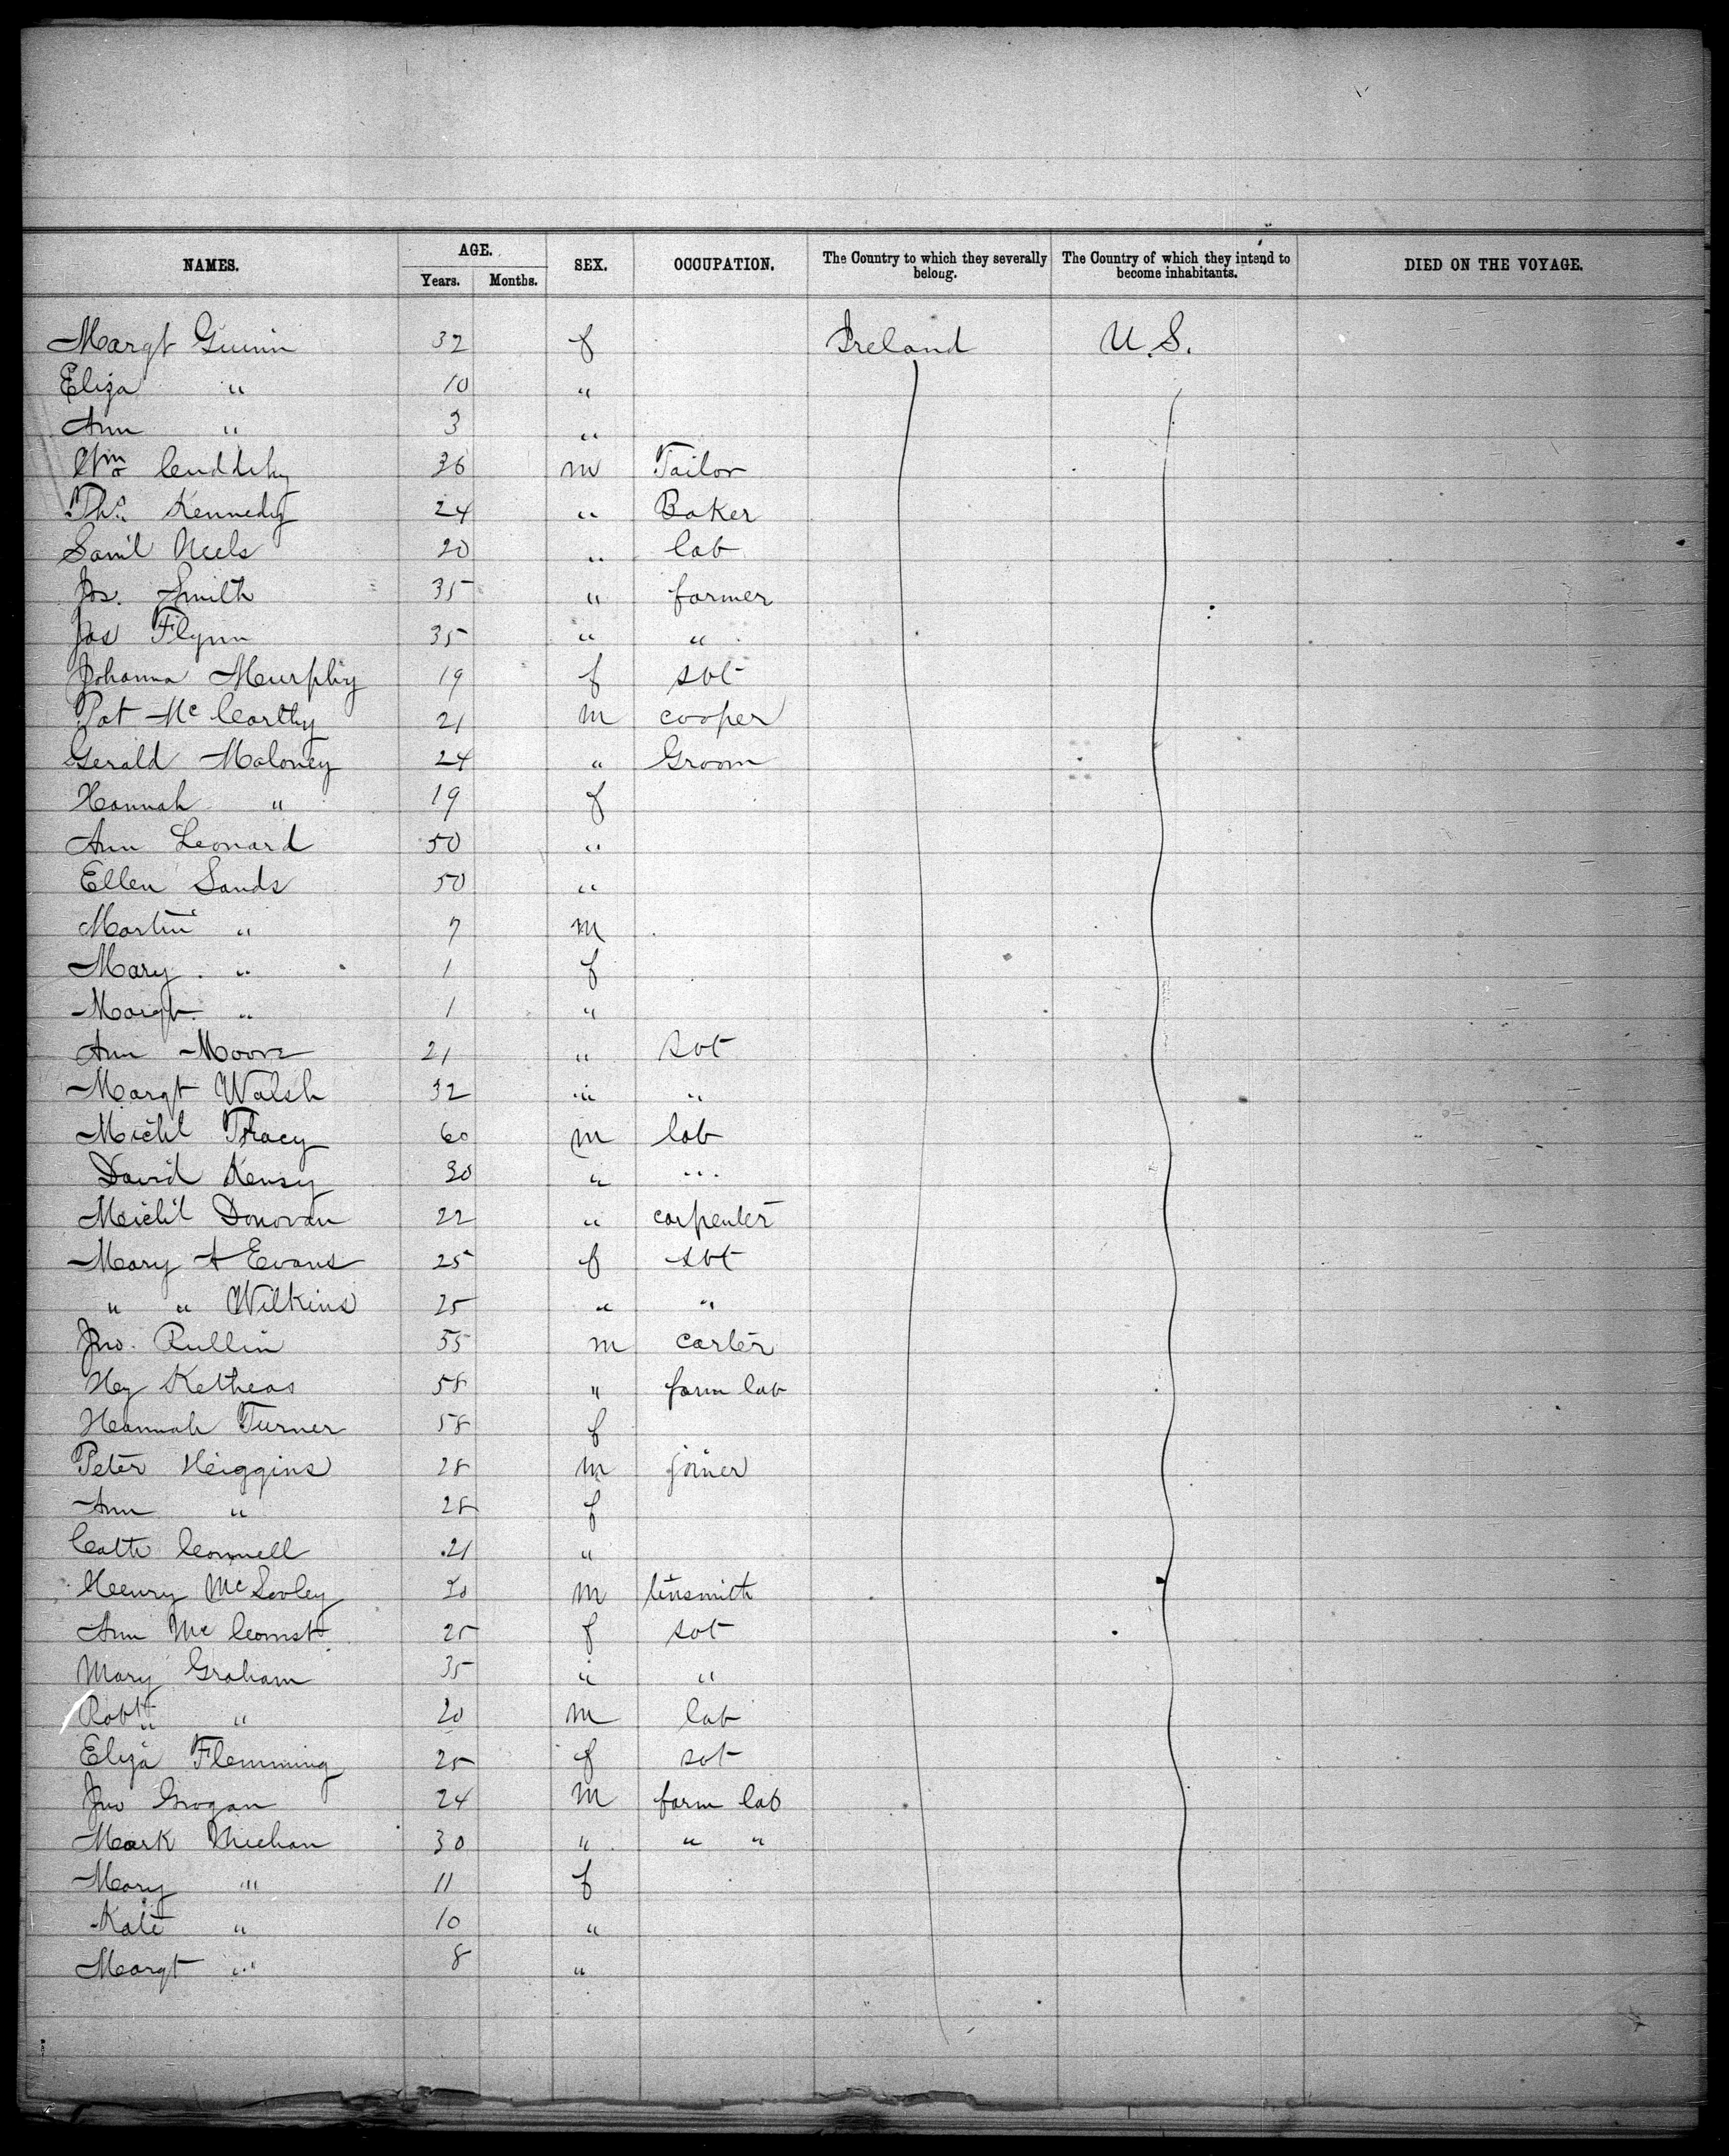 NAMES. AGE. SEX. OCCUPATION. The Country to which they severally belong. The Country of which they intend to become inhabitants. DIED ON THE VOYAGE.
Years. Months.
Margt Guinin 32 f Ireland U.S.
Eliza " 10 "
Ann " 3 "
Wm Cuddihy 26 m Tailor
Ths. Kennedy 24 " Baker
Saml Neels 20 " lab
Jos. Smith 35 " farmer
Jas Flynn 35 " "
Johanna Murphy 19 f svt
Pat McCarthy 21 m cooper
Gerald Maloney 24 " Groom
Hannah " 19 f
Ann Leonard 50 "
Ellen Sands 50 "
Martin " 7 m
Mary " 1 f
Margt " 1 "
Ann Moore 21 " svt
Margt Walsh 32 " "
Michl Tracy 60 m lab
David 30 " "
Michl Donovan 22 " carpenter
Mary A Evans 25 f svt
" " Wilkins 25 " "
Jno. Rullin 55 m carter
Hy Ketheas 58 " farm lab
Hannah Turner 58 f
Peter Higgins 28 m joiner
Ann " 28 f
Cath Connell 21 "
Henry Mc 30 m tinsmith
Ann Mc 25 f svt
Mary Graham 35 " "
Robt " 20 m lab
Eliza Flemming 25 f svt
Jno Grogan 24 m farm lab
Mark Meehan 30 " " "
Mary " 11 f
Kate " 10 "
Margt " 8 "